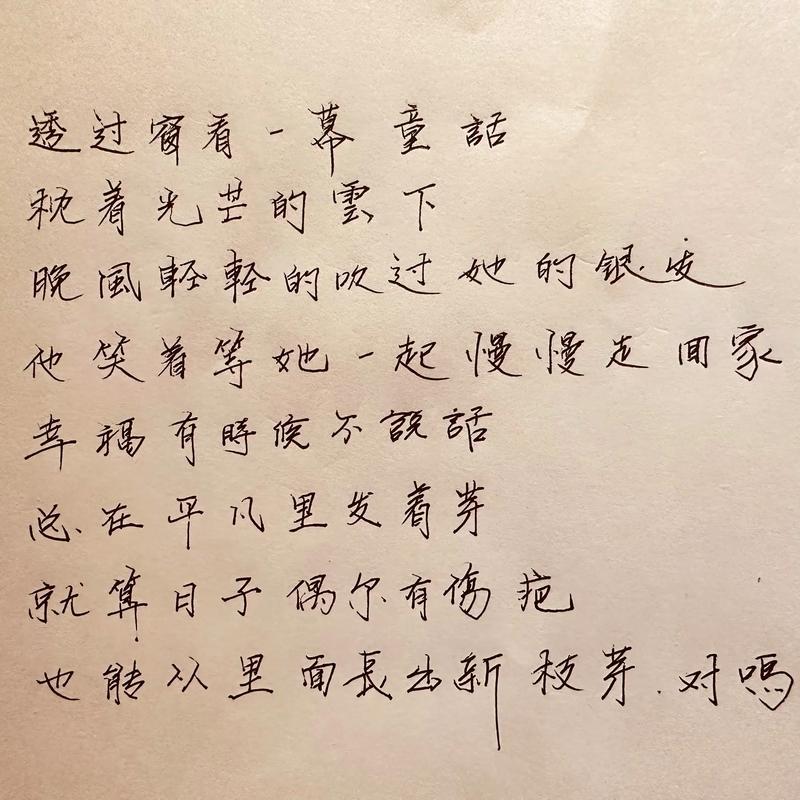 透过窗看一幕童話
枕着光芒的雲下
晚風輕輕的吹过她的银发
他笑着等她一起慢慢走回家
幸福有時候不説話
总在平凡里发着芽
就算日子偶尔有傷疤
也能从里面長出新枝芽.对嗎